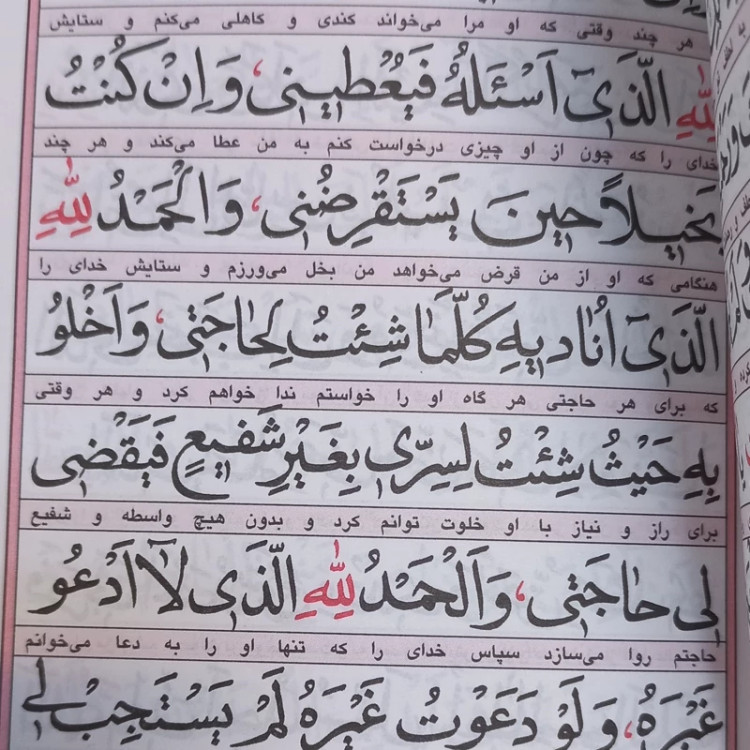 هر چند وقتی که او مرا می‌خواند کندی و کاهلی می‌کنم و ستایش
لِلّٰهِ الَّذَىٓ اَسْئَلُهُ فَيُعْطِينى، وَاِنْ كُنْتُ
خدای را که چون از او چیزی درخواست کنم به من عطا می‌کند و هر چند
بَخيلاً حينَ يَسْتَقْرِضُنى، وَالْحَمْدُ لِلّٰهِ
هنگامی که او از من قرض می‌خواهد من بخل می‌ورزم و ستایش خدای را
الَّذَىٓ اُناديهِ كُلَّمٰا شِئْتُ لِحٰاجَتى، وَاَخْلُو
که برای هر حاجتی هر گاه او را خواستم ندا خواهم کرد و هر وقتی
بِهِ حَيْثُ شِئْتُ لِسِرّى بِغَيْرِ شَفيعٍ فَيَقْضى
برای راز و نیاز با او خلوت توانم کرد و بدون هیچ واسطه و شفیع
لى حٰاجَتى، وَالْحَمْدُ لِلّٰهِ الَّذَى لآ اَدْعُو
حاجتم روا می‌سازد سپاس خدای را که تنها او را به دعا می‌خوانم
غَيْرَهُ، وَلَوْ دَعَوْتُ غَيْرَهُ لَمْ يَسْتَجِبْ لى